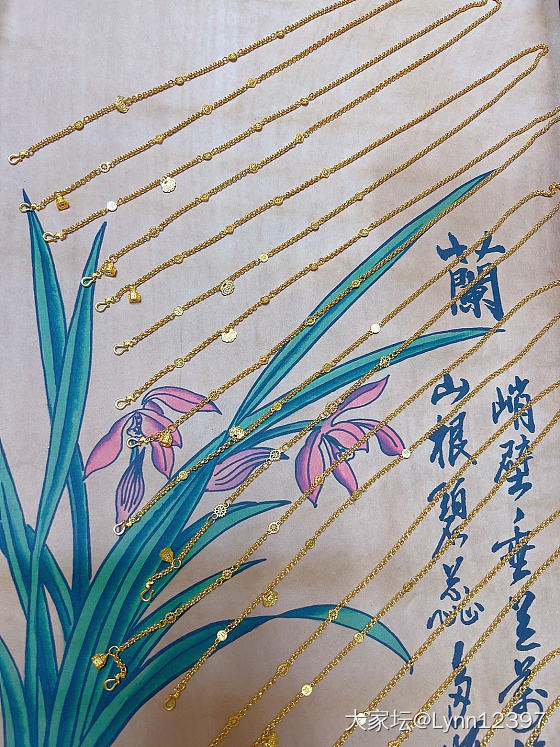 蘭
峭壁垂兰萬
山根碧蕊
大家坛@Lynn12397